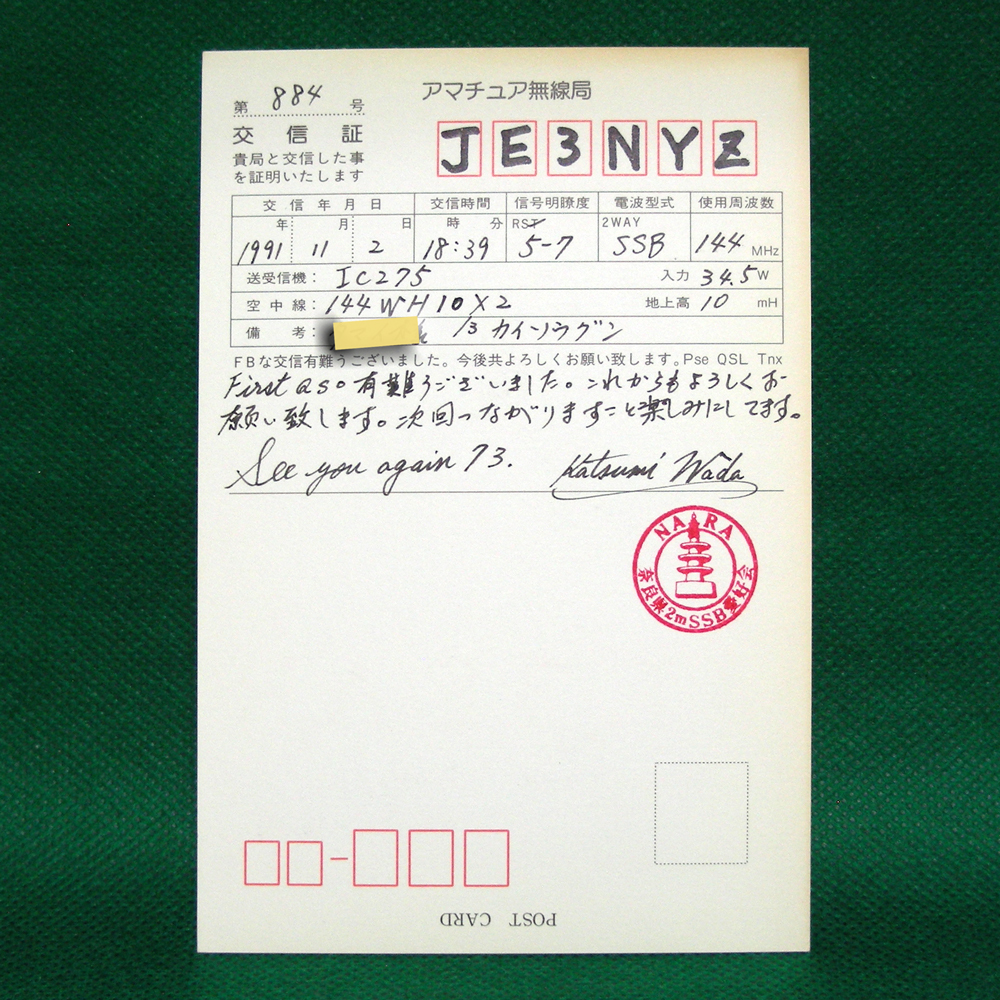 第 884 号
アマチュア無線局
交信証
JE3NYZ
貴局と交信した事
を証明いたします
交信年月日 交信時間 信号明瞭度 電波型式 使用周波数
年 月 日 時 分 RST 2WAY
1991 11 2 18:39 5-7 SSB 144 MHz
送受信機: IC275 入力 34.5 W
空中線: 144WH10X2 地上高 10 mH
備考: /3 カイソウグン
FBな交信有難うございました。今後共よろしくお願い致します。Pse QSL Tnx
First QSO 有難うございました。これからもよろしくお
願い致します。次回つながりますこと楽しみにしてます。
See you again 73. Katsumi Wada
NARA
奈良県2mSSB愛好会
POST CARD